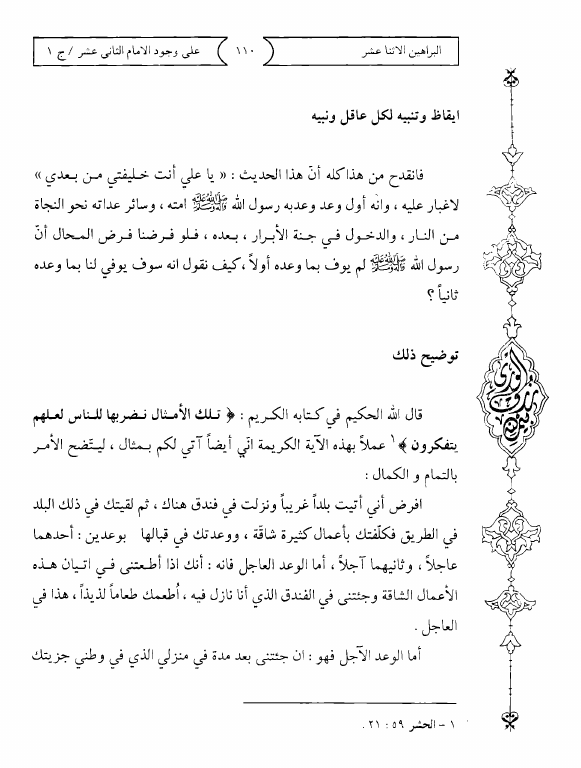 البراهين الاثنا عشر ( ١١٠ ) على وجود الامام الثاني عشر / ج ١
ايقاظ وتنبيه لكل عاقل ونبيه
فانقدح من هذا كله أنّ هذا الحديث : « يا علي أنت خليفتي من بعدي »
لاغبار عليه ، وانه أول وعد وعدبه رسول الله ﷺ امته ، وسائر عداته نحو النجاة
من النار ، والدخول في جنة الأبرار ، بعده ، فلو فرضنا فرض المحال أنّ
رسول الله ﷺ لم يوف بما وعده أولاً ، كيف نقول انه سوف يوفي لنا بما وعده
ثانياً ؟
توضيح ذلك
قال الله الحكيم في كتابه الكريم : ﴿ تلك الأمثال نضربها للناس لعلهم
يتفكرون ﴾ ١ عملاً بهذه الآية الكريمة انّي أيضاً آتي لكم بمثال ، ليتّضح الأمر
بالتمام و الكمال :
افرض أني أتيت بلداً غريباً ونزلت في فندق هناك ، ثم لقيتك في ذلك البلد
في الطريق فكلّفتك بأعمال كثيرة شاقّة ، ووعدتك في قبالها بوعدين : أحدهما
عاجلاً ، وثانيهما آجلاً ، أما الوعد العاجل فانه : أنك اذا أطعتنى في اتيان هذه
الأعمال الشاقة وجئتنى في الفندق الذي أنا نازل فيه ، أُطعمك طعاماً لذيذاً ، هذا في
العاجل .
أما الوعد الآجل فهو : ان جئتنى بعد مدة في منزلي الذي في وطني جزيتك
١ - الحشر ٥٩ : ٢١ .